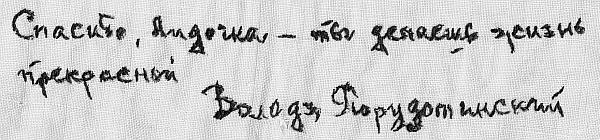 Спасибо, Лидочка – ты делаешь жизнь
прекрасной
Володя Порудоминский